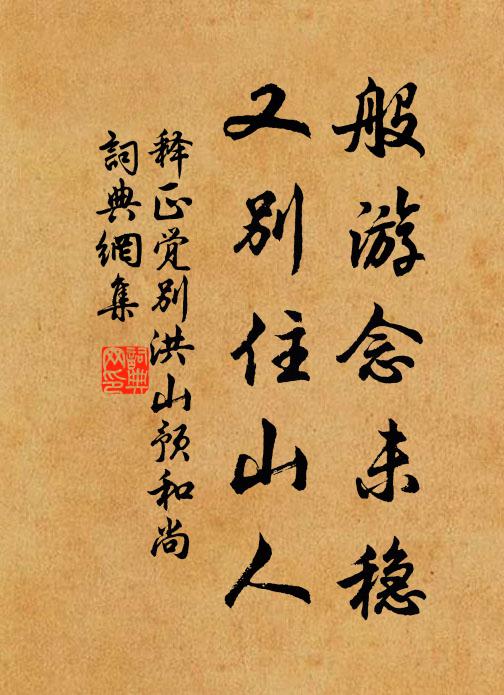 般游念未稳
又别住山人
释正觉别洪山预和尚
詞典網集
詞典網印